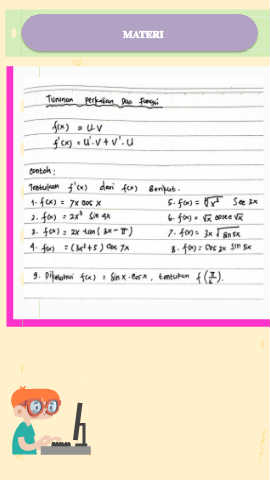 MATERI
Turunan Perkalian Dua Fungsi
f(x) = U.V
f'(x) = U'.V + V'.U
Contoh:
Tentukan f'(x) dari f(x) Berikut.
1. f(x) = 7x cos x
2. f(x) = 2x³ sin 4x
3. f(x) = 2x tan (3x - π)
4. f(x) = (3x²+5) cos 7x
5. f(x) = Sec 2x
6. f(x) = √x cosec √x
7. f(x) = 3x √sin 5x
8. f(x) = cos 3x sin 5x
9. Diketahui f(x) = Sin x . cos x, tentukan f(π/6).